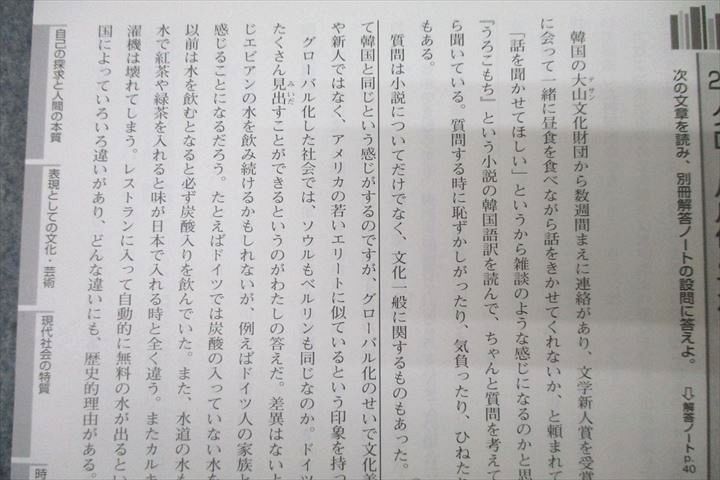 次の文章を読み、別冊解答ノートの設問に答えよ。
⇨解答ノートp.40
韓国の大山文化財団から数週間まえに連絡があり、文学新人賞を受賞
デサン
に会って一緒に昼食を食べながら話をきかせてくれないか、と頼まれて
「話を聞かせてほしい」というから雑談のような感じになるのかと思
『うろこもち』という小説の韓国語訳を読んで、ちゃんと質問を考えて
ら聞いている。質問する時に恥ずかしがったり、気負ったり、ひねた
もある。
質問は小説についてだけでなく、文化一般に関するものもあった。
て韓国と同じという感じがするのですが、グローバル化のせいで文化差
や新人ではなく、アメリカの若いエリートに似ているという印象を持つ
グローバル化した社会では、ソウルもベルリンも同じなのか。ドイツ
たくさん見出すことができるというのがわたしの答えだ。差異はないよ
みいだ
じエビアンの水を飲み続けるかもしれないが、例えばドイツ人の家族と
感じることになるだろう。たとえばドイツでは炭酸の入っていない水を
以前は水を飲むとなると必ず炭酸入りを飲んでいた。また、水道の水も
水で紅茶や緑茶を入れると味が日本で入れる時と全く違う。またカルキ
濯機は壊れてしまう。レストランに入って自動的に無料の水が出るとい
国によっていろいろ違いがあり、どんな違いにも、歴史的理由がある。
自己の探求と人間の本質
表現としての文化・芸術
現代社会の特質
時